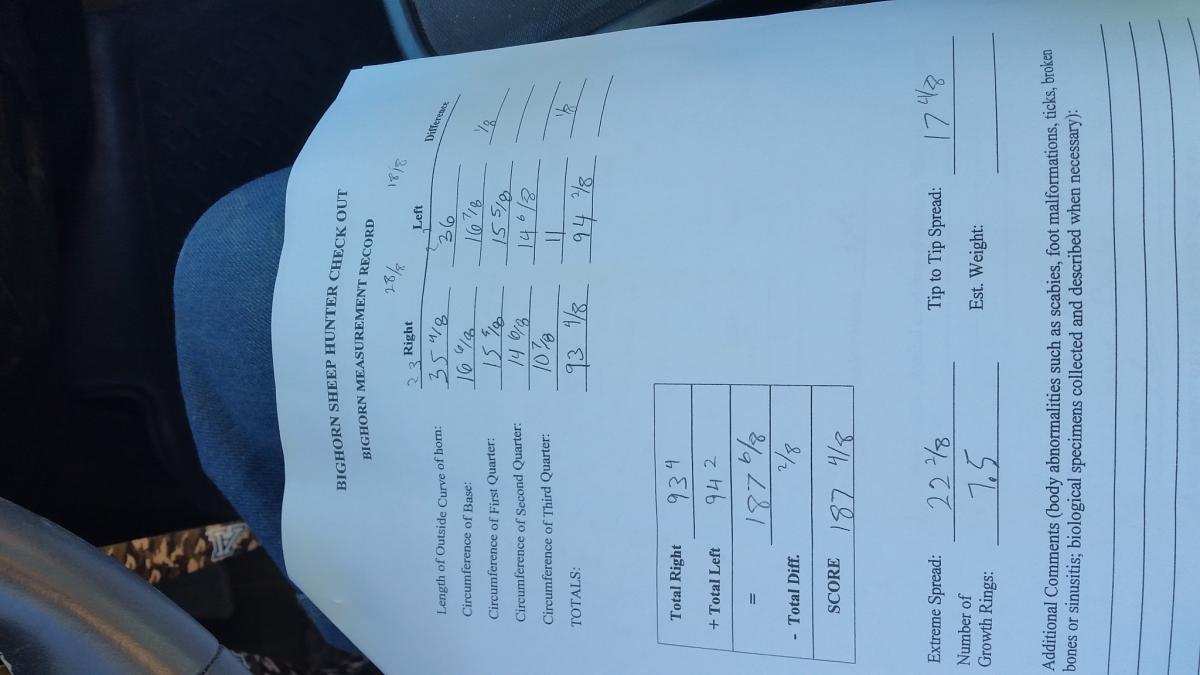 BIGHORN SHEEP HUNTER CHECK OUT
BIGHORN MEASUREMENT RECORD
28/8 18/8
23 Right Left Difference
Length of Outside Curve of horn: 35 4/8 36
Circumference of Base: 16 6/8 16 7/8 1/8
Circumference of First Quarter: 15 5/8 15 5/8
Circumference of Second Quarter: 14 6/8 14 6/8
Circumference of Third Quarter: 10 7/8 11 1/8
TOTALS: 93 4/8 94 2/8
Total Right 93 4
+ Total Left 94 2
= 187 6/8
- Total Diff. 2/8
SCORE 187 4/8
Extreme Spread: 22 2/8 Tip to Tip Spread: 17 4/8
Number of
Growth Rings: 7.5 Est. Weight:
Additional Comments (body abnormalities such as scabies, foot malformations, ticks, broken
bones or sinusitis; biological specimens collected and described when necessary):